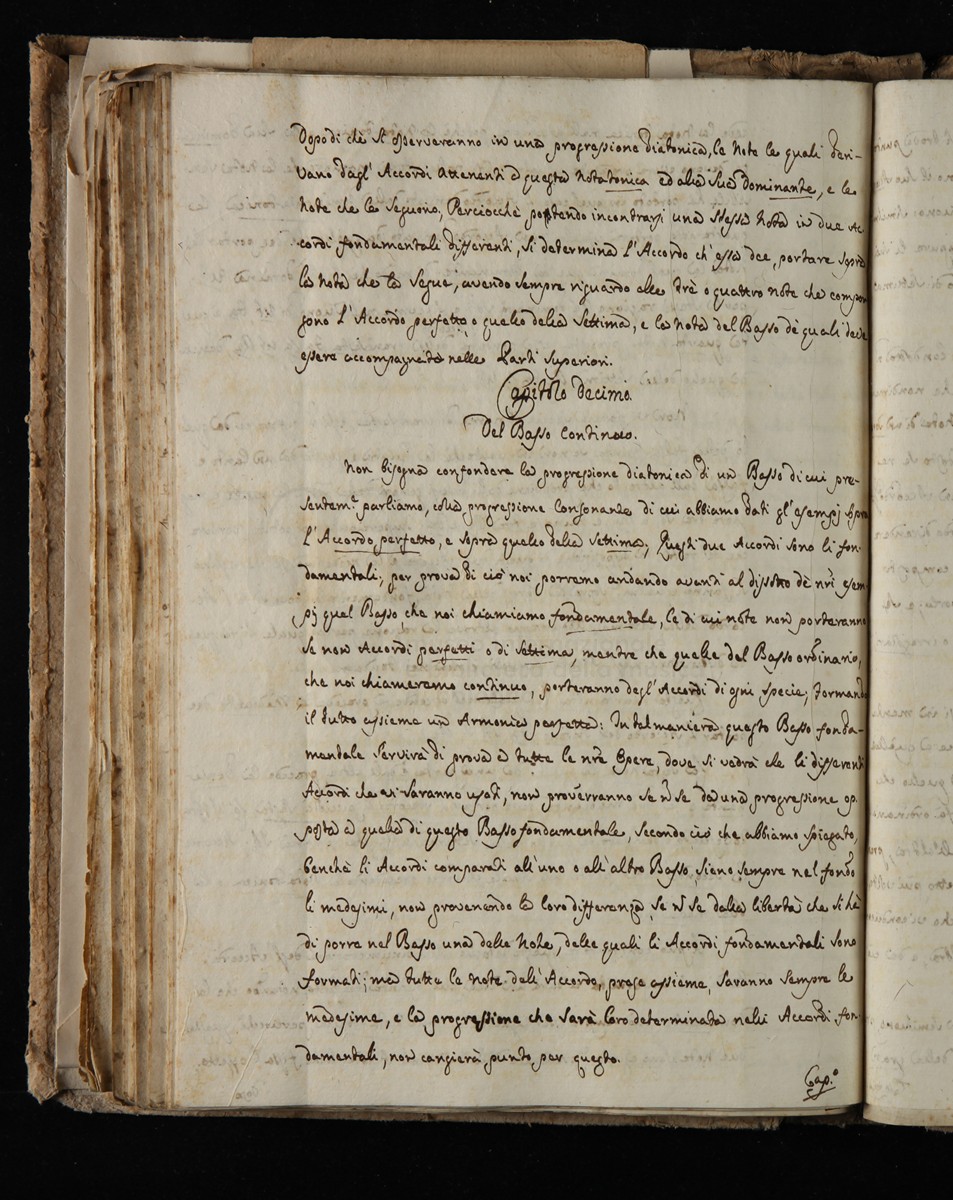 Dopodi chè si osserveranno in una progressione diatonica, le note le quali deri-
vano dagl' Accordi attenenti à questa nota tonica ed alla sua dominante, e le
note che le seguono, Perciocchè potendo incontrarsi una stessa nota in due Ac
cordi fondamentali differenti, si determina l'Accordo ch'essa dee, portare sopra
la nota che la segue, avendo sempre riguardo alle trè o quattro note che compon
gono l'Accordo perfetto o quello della settima, e la nota del Basso dè quali deve
essere accompagnata nelle Parti superiori.
Capitolo decimo.
Del Basso Continuo.
Non bisogna confondere la progressione diatonica di un Basso di cui pre-
sentem.e parliamo, colla progressione Consonante di cui abbiamo dati gl'esempj sopra
l'Accordo perfetto, e sopra quello della Settima; Questi due Accordi sono li fon-
damentali; per prova di ciò noi porremo andando avanti al dissotto dè nri esem
pj qual Basso, che noi chiamiamo fondamentale, le di cui note non porteranno
se non Accordi perfetti o di settima, mentre che quelle del Basso ordinario,
che noi chiameremo continuo, porteranno degl'Accordi di ogni specie; formando
il tutto assieme un Armonica perfetta: In tal maniera questo Basso fonda-
mentale servirà di prova à tutte le nre Opere, dove si vedrà che li differenti
Accordi che vi saranno usati, non proverranno se ñ se da una progressione op
posta à quella di questo Basso fondamentale, secondo ciò che abbiamo spiegato,
benchè li Accordi comparati all'uno o all'altro Basso, sieno sempre nel fondo
li medesimi, non provenendo la loro differenza se ñ se dalla libertà che si hà
di porre nel Basso una delle Note, delle quali li Accordi fondamentali sono
formati; mà tutte le note dell'Accordo, prese assieme, saranno sempre le
medesime, e la progressione che sarà loro determinata nelli Accordi fon
damentali, non cangierà punto per questo.
Cap.o